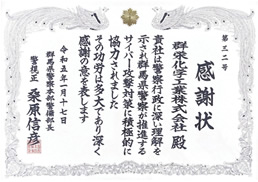 第三二号
感謝状
群栄化学工業株式会社 殿
貴社は警察行政に深い理解を
示され群馬県警察が推進する
サイバー攻撃対策に積極的に
協力されました
その功労は多大であり深く
感謝の意を表します
令和五年一月十七日
群馬県警察本部警備部長
警視正 桑原信彦